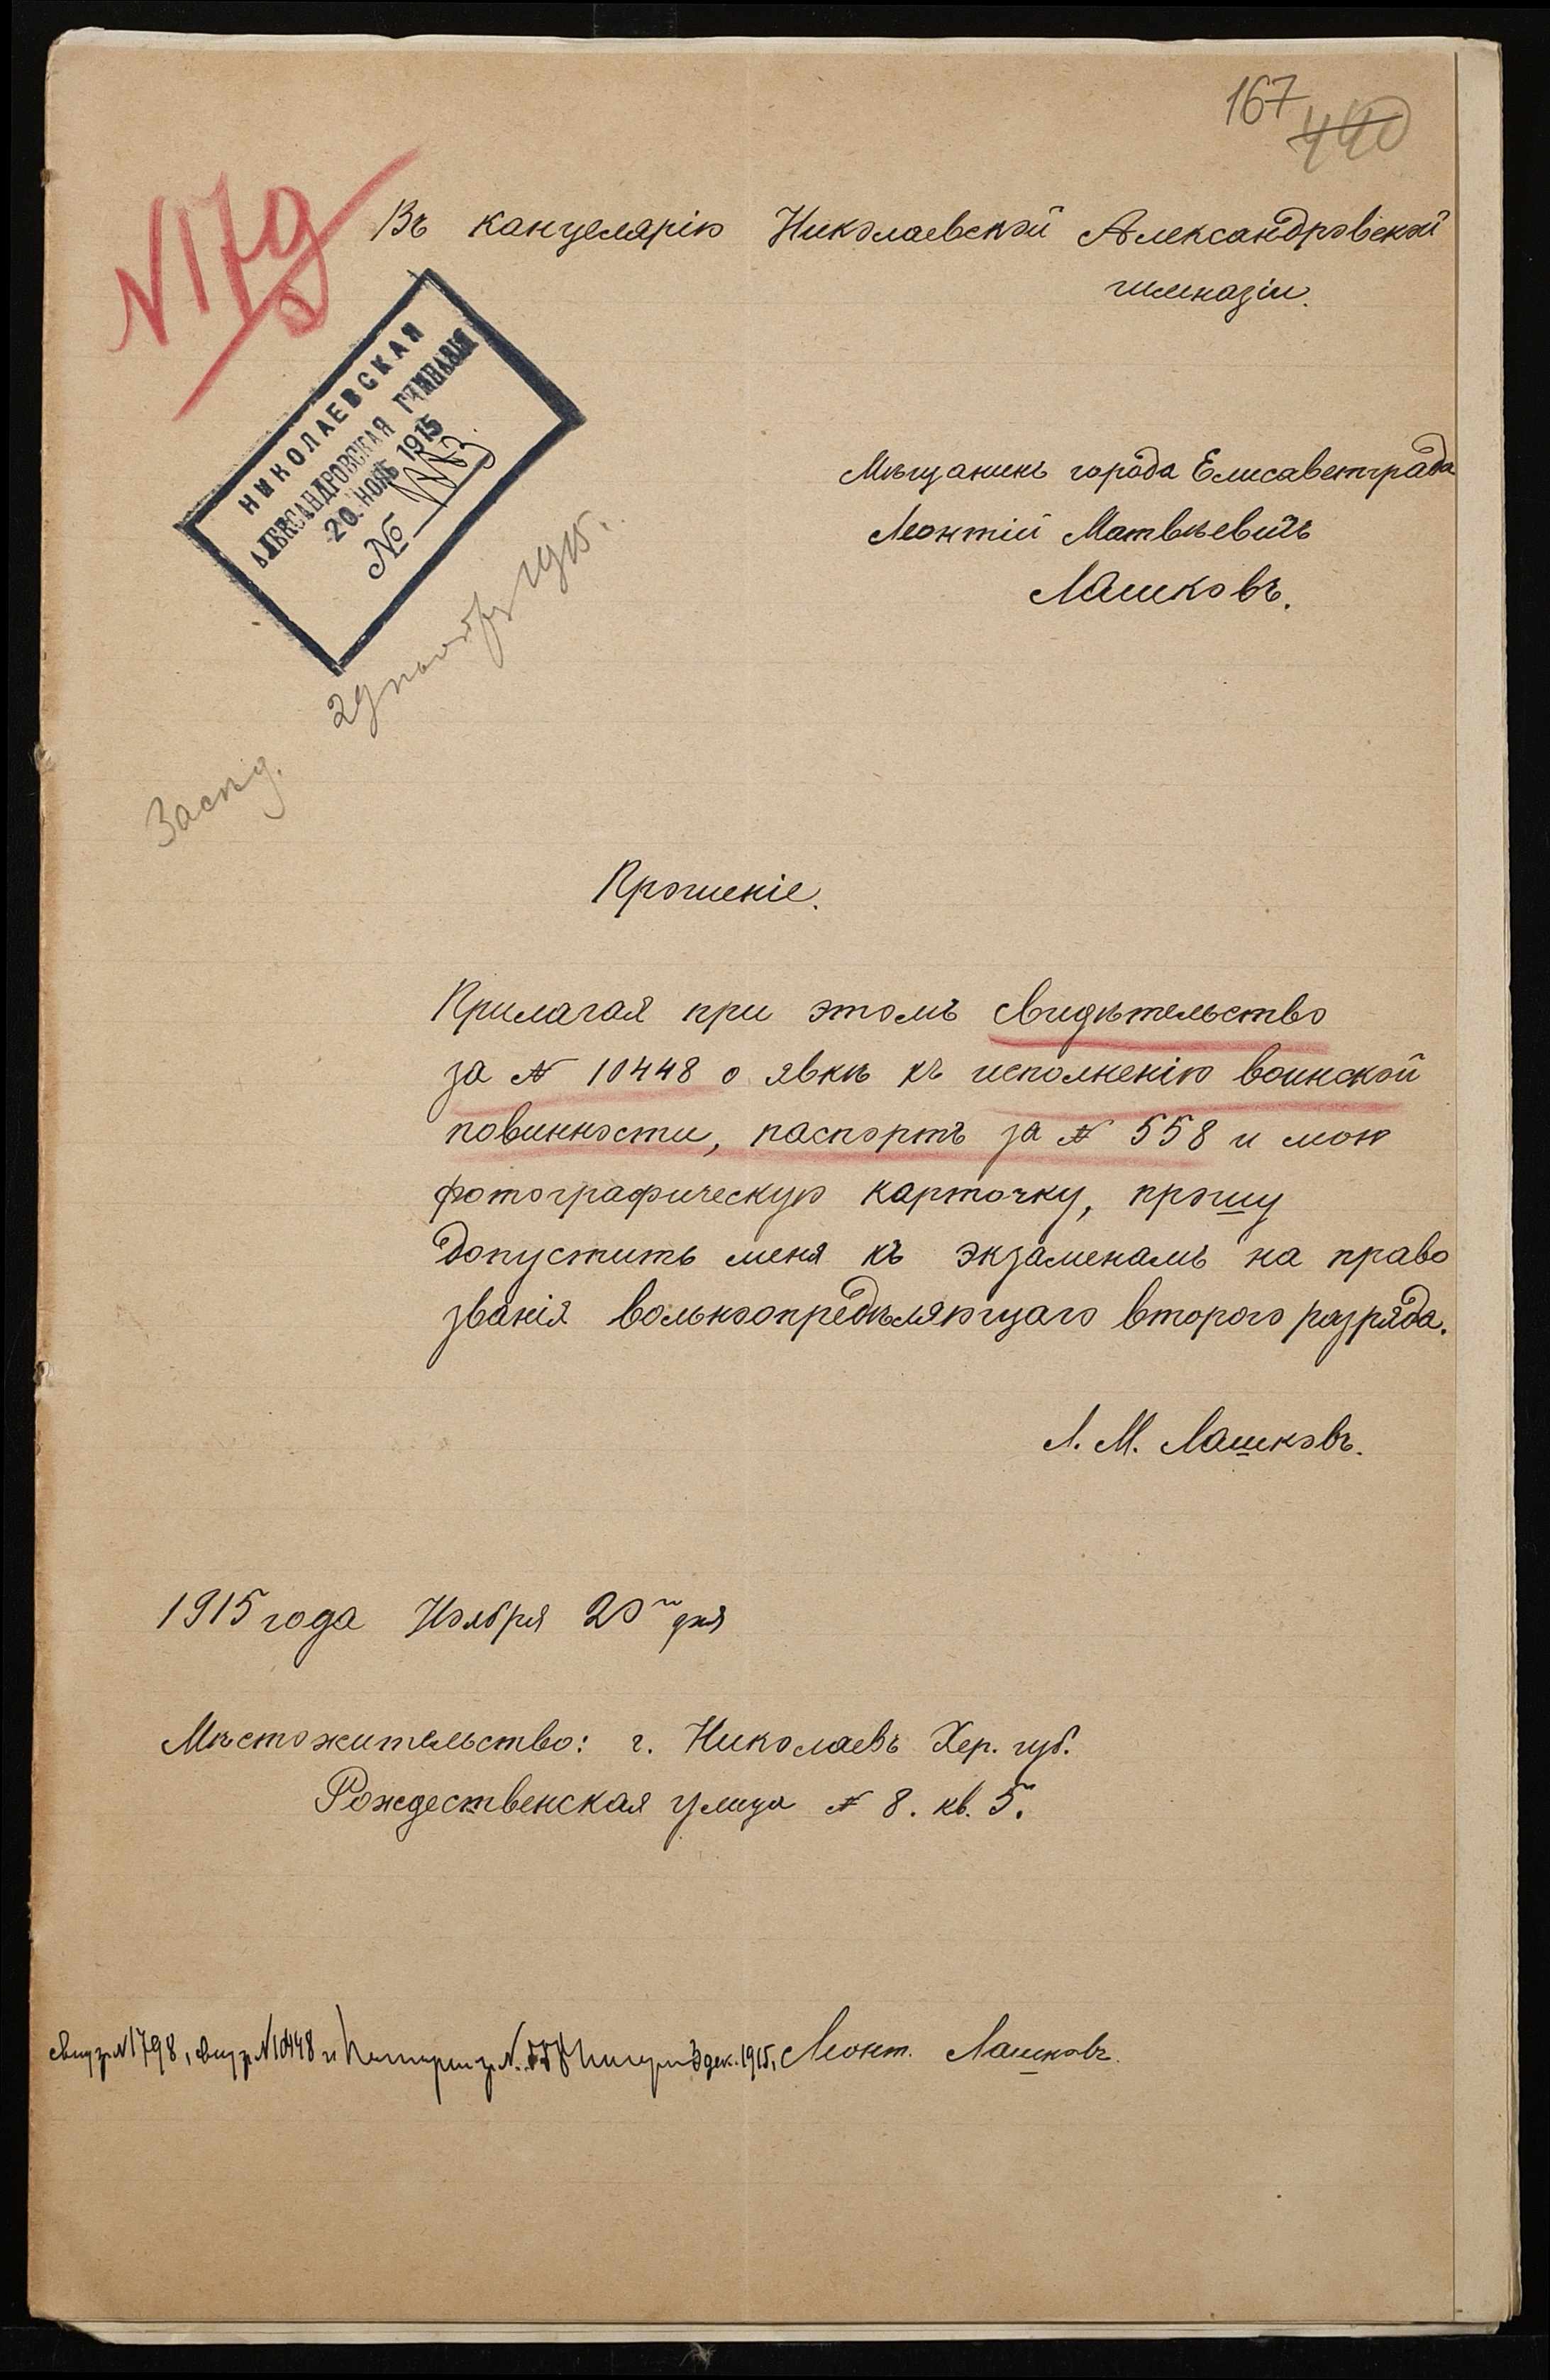 167
440
N 179
Въ канцелярію Николаевской Александровской
гимназіи.
НИКОЛАЕВСКАЯ
АЛЕКСАНДРОВСКАЯ ГИМНАЗІЯ
20. НОЯБ 1915
№
Мѣщанинъ города Елисаветграда
Леонтій Матвѣевичъ
Лашковъ.
Засѣд. 29 ноября 1915.
Прошеніе.
Прилагая при этомъ свидѣтельство
за № 10448 о явкѣ къ исполненію воинской
повинности, паспортъ за № 558 и мою
фотографическую карточку, прошу
допустить меня къ экзаменамъ на право
званія вольноопредѣляющаго второго разряда.
Л. М. Лашковъ.
1915 года Ноября 20го дня
Мѣстожительство: г. Николаевъ Хер. губ.
Рождественская улица № 8. кв. 5.
свид за N 1798, свид за N 10448 и паспортъ за N. 558 получилъ 3 дек. 1915, Леонт. Лашковъ.